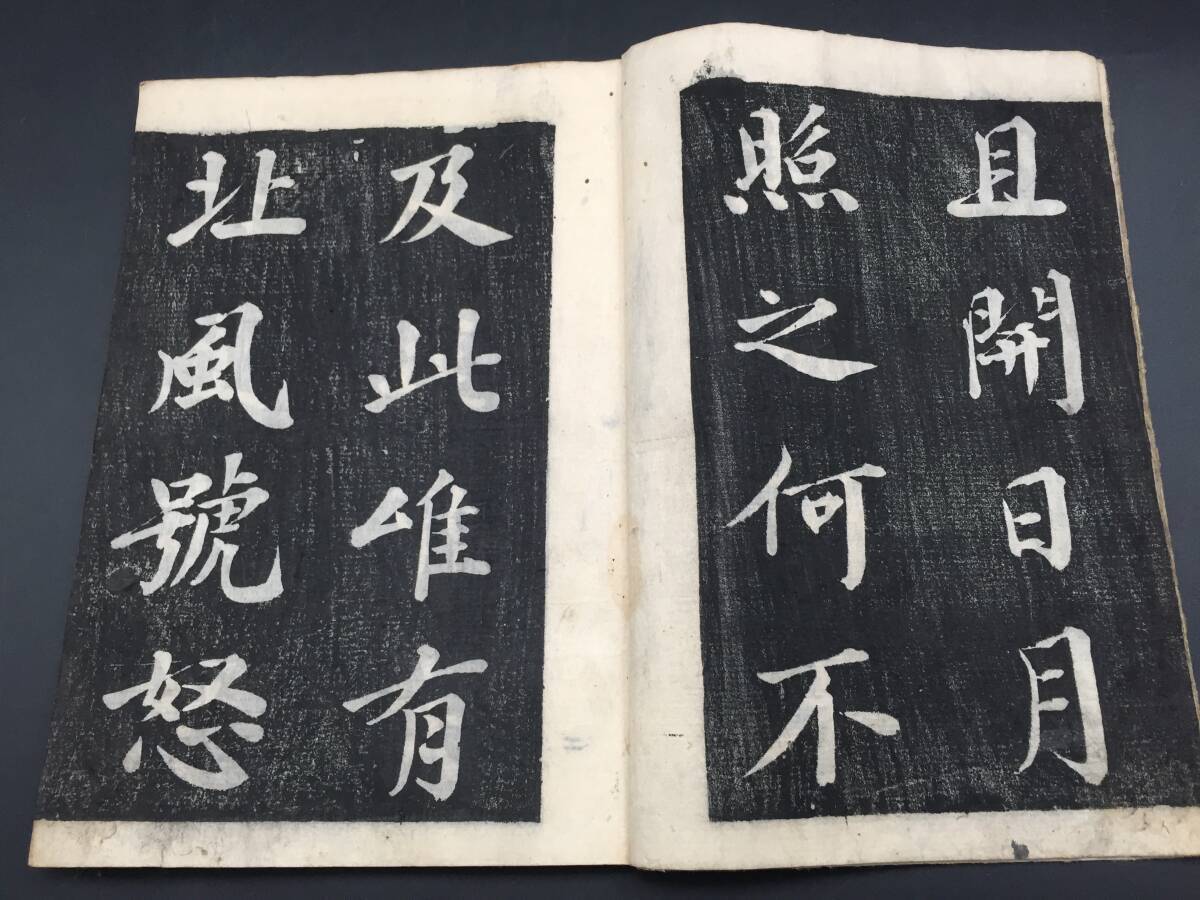 且開日月
照之何不
及此唯有
北風號怒